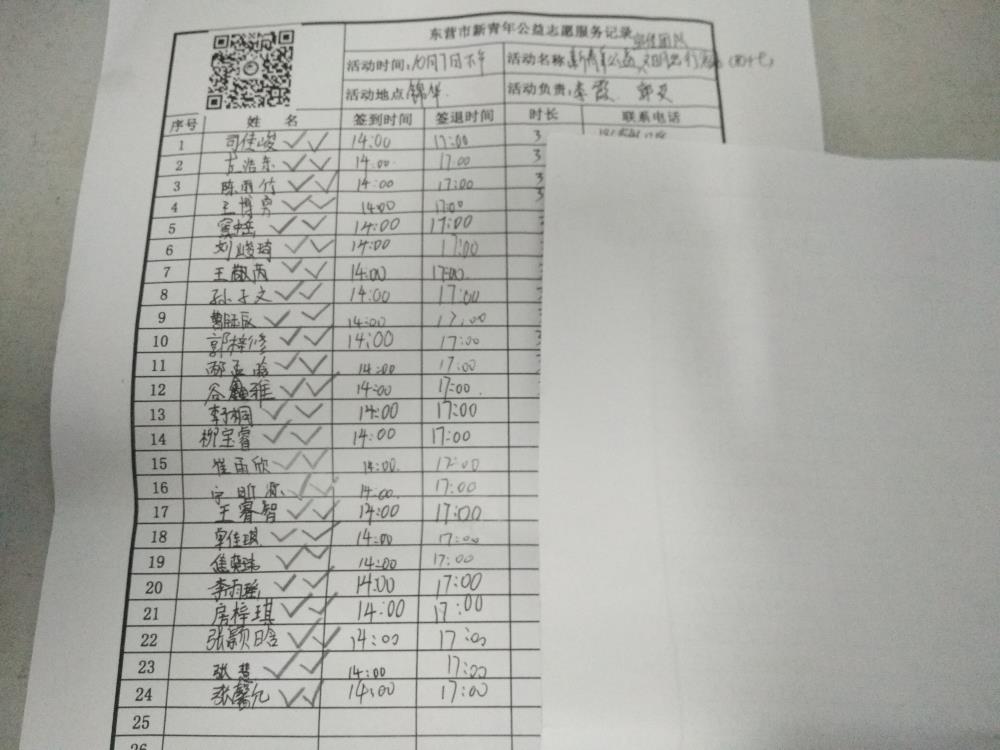 东营市新青年公益志愿服务记录
活动时间:10月7日下午 活动名称:新青年公益文明出行
活动地点:锦华 活动负责:李霞
序号 姓 名 签到时间 签退时间 时长 联系电话
1 司佳峻 14:00 17:00 3
2 方浩东 14:00 17:00 3
3 陈雨竹 14:00 17:00 3
4 王博男 14:00 17:00 3
5 14:00 17:00
6 刘峻琦 14:00 17:00
7 王敬芮 14:00 17:00
8 孙子文 14:00 17:00
9 14:00 17:00
10 郭梓修 14:00 17:00
11 14:00 17:00
12 谷鑫雅 14:00 17:00
13 14:00 17:00
14 柳宝睿 14:00 17:00
15 崔雨欣 14:00 17:00
16 14:00 17:00
17 王睿智 14:00 17:00
18 14:00 17:00
19 14:00 17:00
20 李雨瑶 14:00 17:00
21 房梓琪 14:00 17:00
22 张颖晗 14:00 17:00
23 张慧 14:00 17:00
24 张馨允 14:00 17:00
25
26